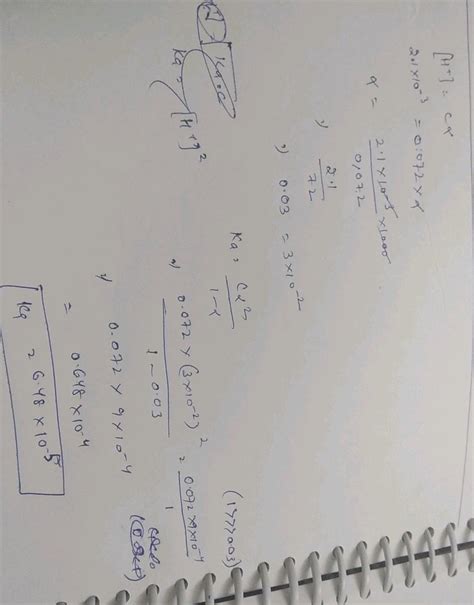 [H+] = Cα
2.1×10⁻³ = 0.072 × α
α = 2.1 × 10⁻³ × 1000 / 0.072
⇒ 2.1 / 72
⇒ 0.03 = 3×10⁻²
Ka = [H+]²
Ka = Cα² / 1-α
⇒ 0.072 × (3×10⁻²)² / 1 - 0.03 = 0.072×9×10⁻⁴ / 1
(1>>>0.03)
⇒ 0.072 × 9×10⁻⁴
= 0.648 × 10⁻⁴
Ka = 6.48 × 10⁻⁵